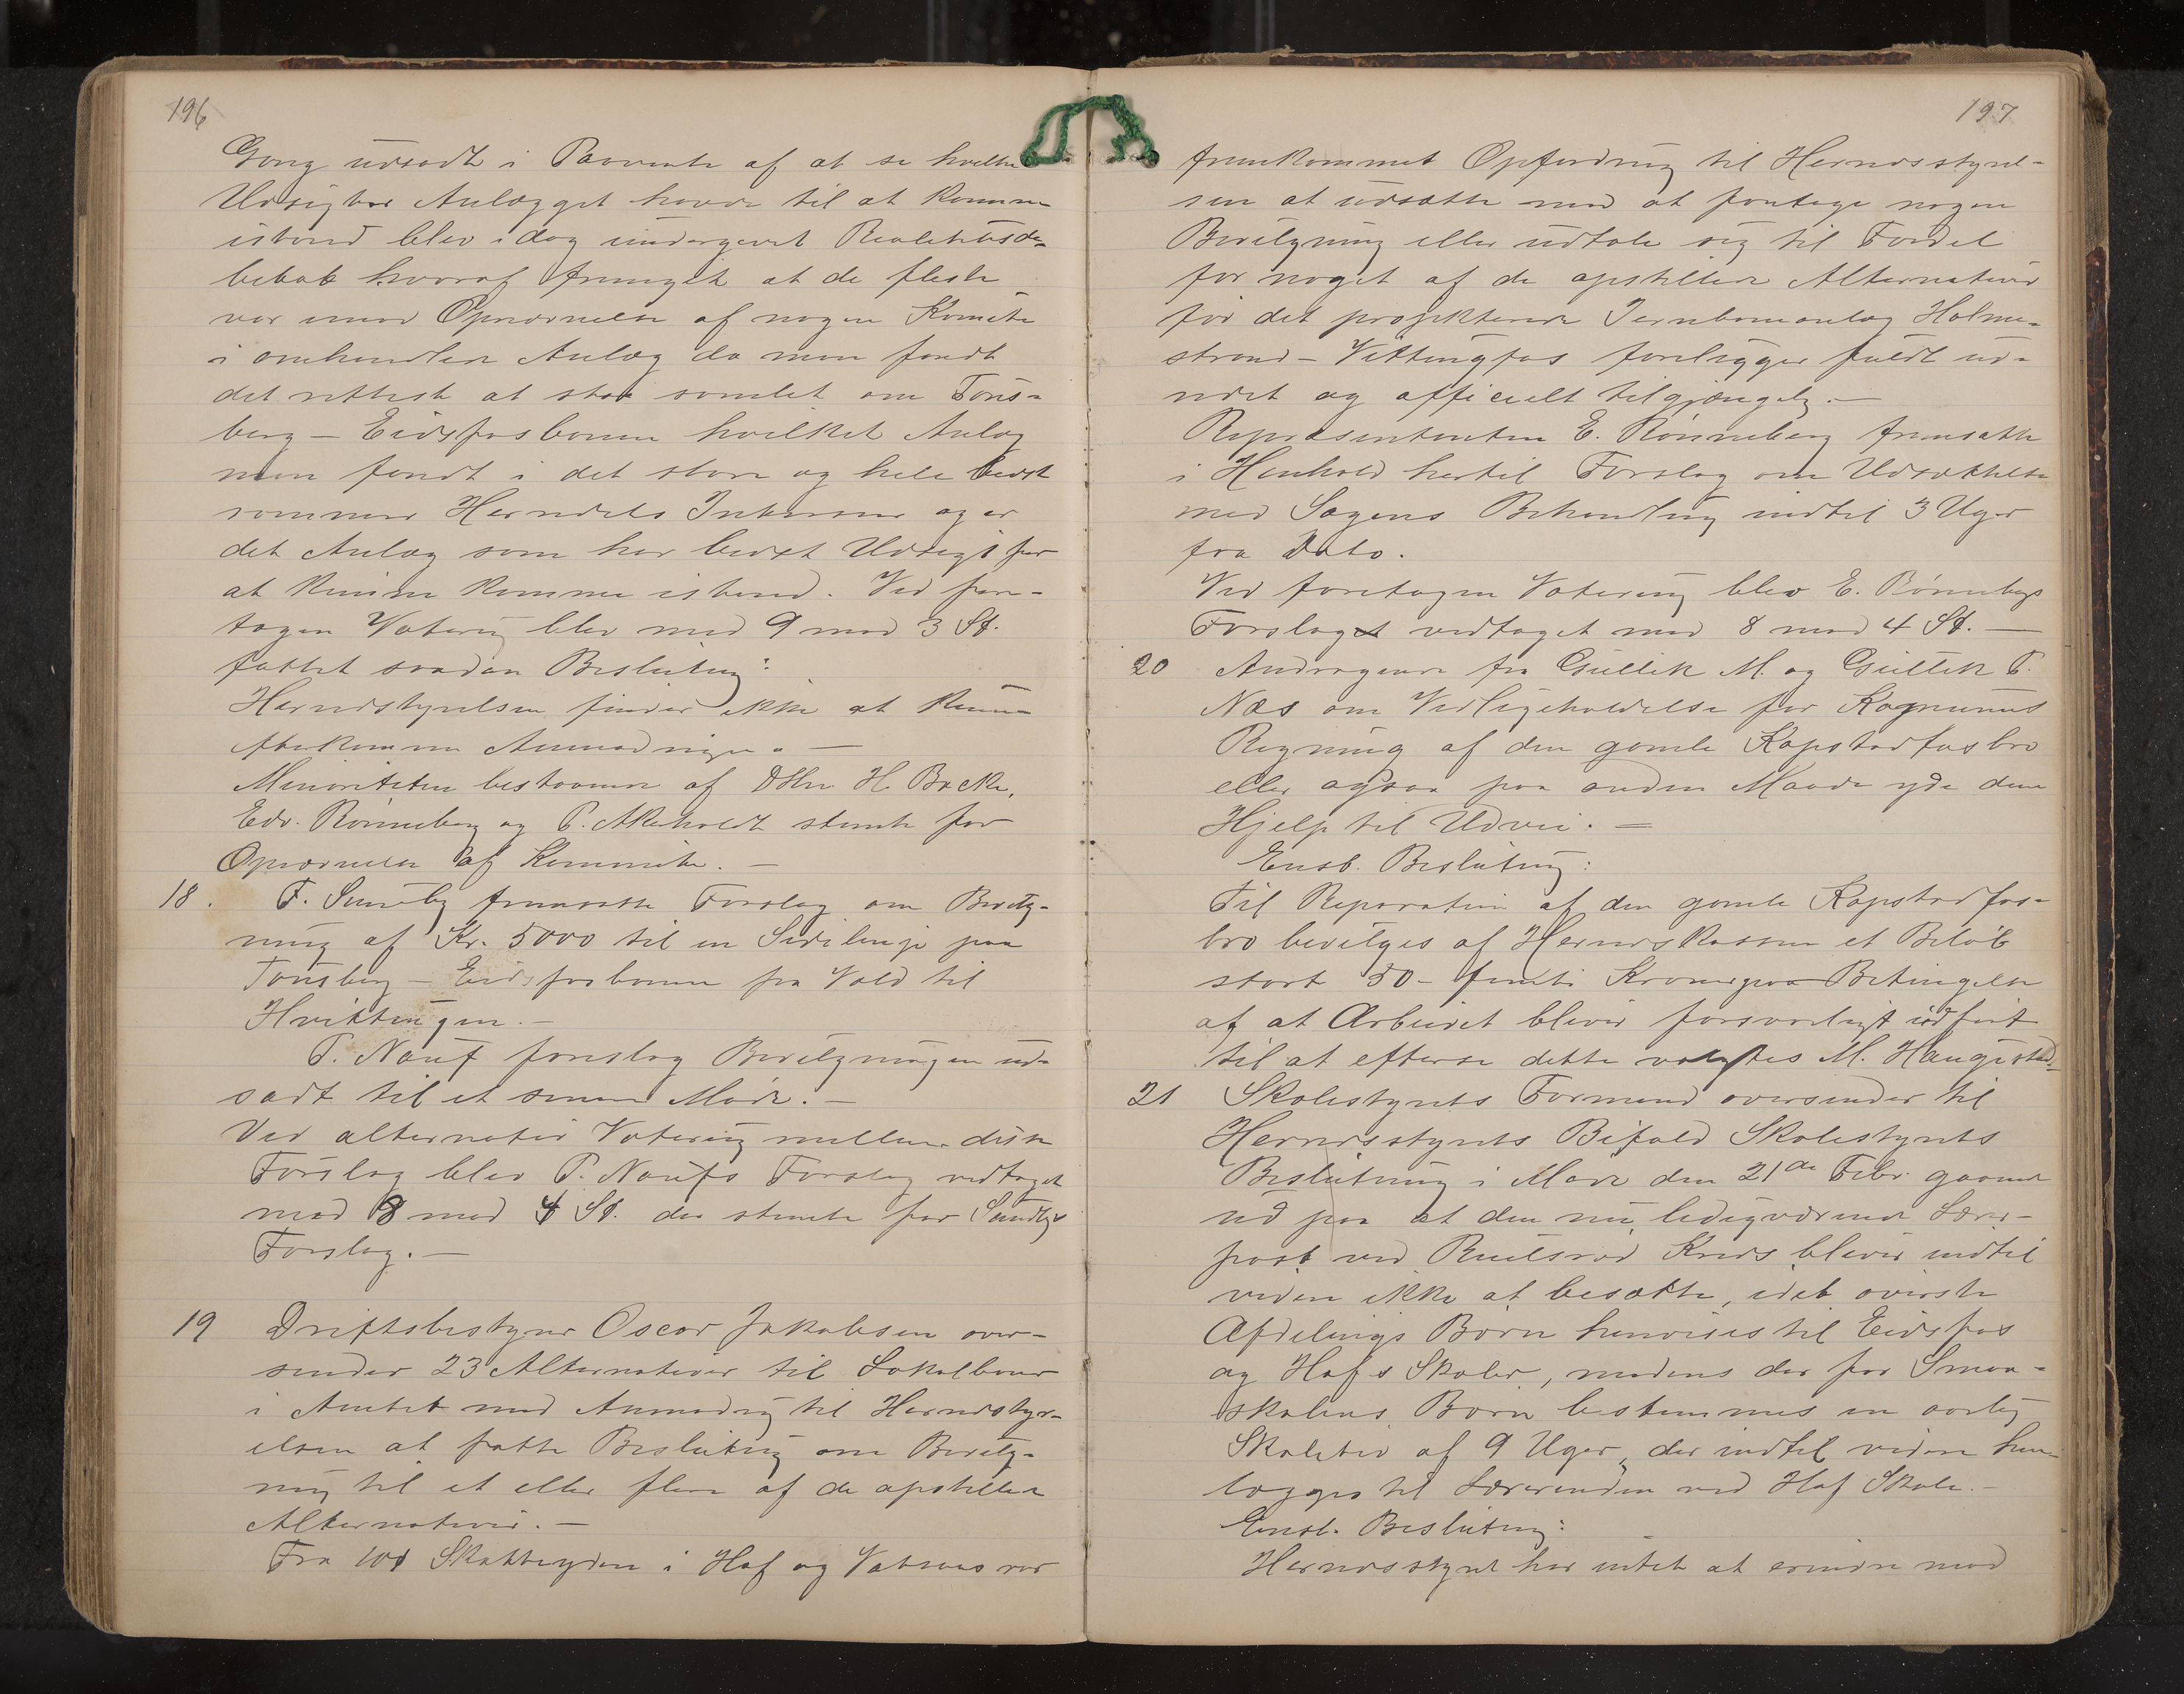 196
Gang udsadt i Paavente af at se hvilke
Udsigter Anlægget havde til at komme
istand blev idag undergivet Realitetsde-
bebat hvoraf fremgik at de fleste
var imod Opnævnelse af nogen Komite
i omhandlede Anlæg da man fandt
det rettest at staa samlet om Tøns-
berg - Eidsfosbanen hvilket Anlæg
man fandt i det store og hele bedst
sommer Herredets Interesser og er
det Anlæg som har bedst Udsigt for
at kunne komme istand. Ved fore-
tagen Votering blev med 9 mod 3 St.
fattet saadan Beslutning:
Herredstyrelsen finder ikke at kunne
efterkomme Anmodningen. -
Minoriteten bestaaende af DHrr H. Bache,
Edv. Rønneberg og P. Akerholdt stemte for
Opnævnelse af Kommite. -
18. F. Sundby fremsatte Forslag om Bevilg-
ning af Kr. 5000 til en Sidelinje paa
Tønsberg - Eidsfosbanen fra Vold til
Hvittingen. -
P. Nauf foreslog Bevilgningen ud-
sadt til et senere Møde. -
Ved alternativ Votering mellem disse
Forslag blev P. Naufs Forslag vedtaget
med 8 mod 4 St. der stemte for Sundbys
Forslag. -
19 Driftsbestyrer Oscar Jakobsen over-
sender 23 Alternativer til Lokalbaner
i Amtet med Anmodning til Herredstyr-
elsen at fatte Beslutning om Bevilg-
ning til et eller flere af de opstillede
Alternativer. -
Fra 101 Skatteydere i Hof og Vassaas var
197
fremkommet Opfordring til Herredsstyrel-
sen at udsætte med at foretage nogen
Bevilgning eller udtale sig til Fordel
for noget af de opstillede Alternativer
før det projekterede Jernbaneanlæg Holme-
strand - Vittingfos foreligger fuldt ud-
redet og officielt tilgjængelig. -
Repræsentanten E. Rønneberg fremsatte
i Henhold hertil Forslag om Udsættelse
med Sagens Behandling indtil 3 Uger
fra Dato.
Ved foretagen Votering blev E. Rønnebergs
Forslaget vedtaget med 8 mod 4 St. -
20 Andragende fra Gullik M. og Gullik P.
Næs om Vedligeholdelse for Kommunens
Regning af den gamle Kopstadfosbro
eller ogsaa paa anden Maade yde dem
Hjelp til Udvei. =
Ensb. Beslutning:
Til Reparation af den gamle Kopstadfos-
bro bevilges af Herredskassen et Beløb
stort 50 - femti Kroner paa Betingelse
af at Arbeidet bliver forsvarligt udført
til at efterse dette valgtes M. Haugestad.
21 Skolestyrets Formand oversender til
Herredsstyrets Bifald Skolestyrets
Beslutning i Møde den 21de Febr. gaaende
ud paa at den nu ledigværende Lærer-
post ved Ruelsrød Kreds bliver indtil
videre ikke at besætte, idet øverste
Afdelings Børn henvises til Eidsfos
og Hofs Skoler, medens der for Smaa-
skolens Børn bestemmes en aarlig
Skoletid af 9 Uger, der indtil videre hen-
lægges til Lærerinden ved Hof Skole. -
Ensb. Beslutning:
Herredsstyret har intet at erindre mod